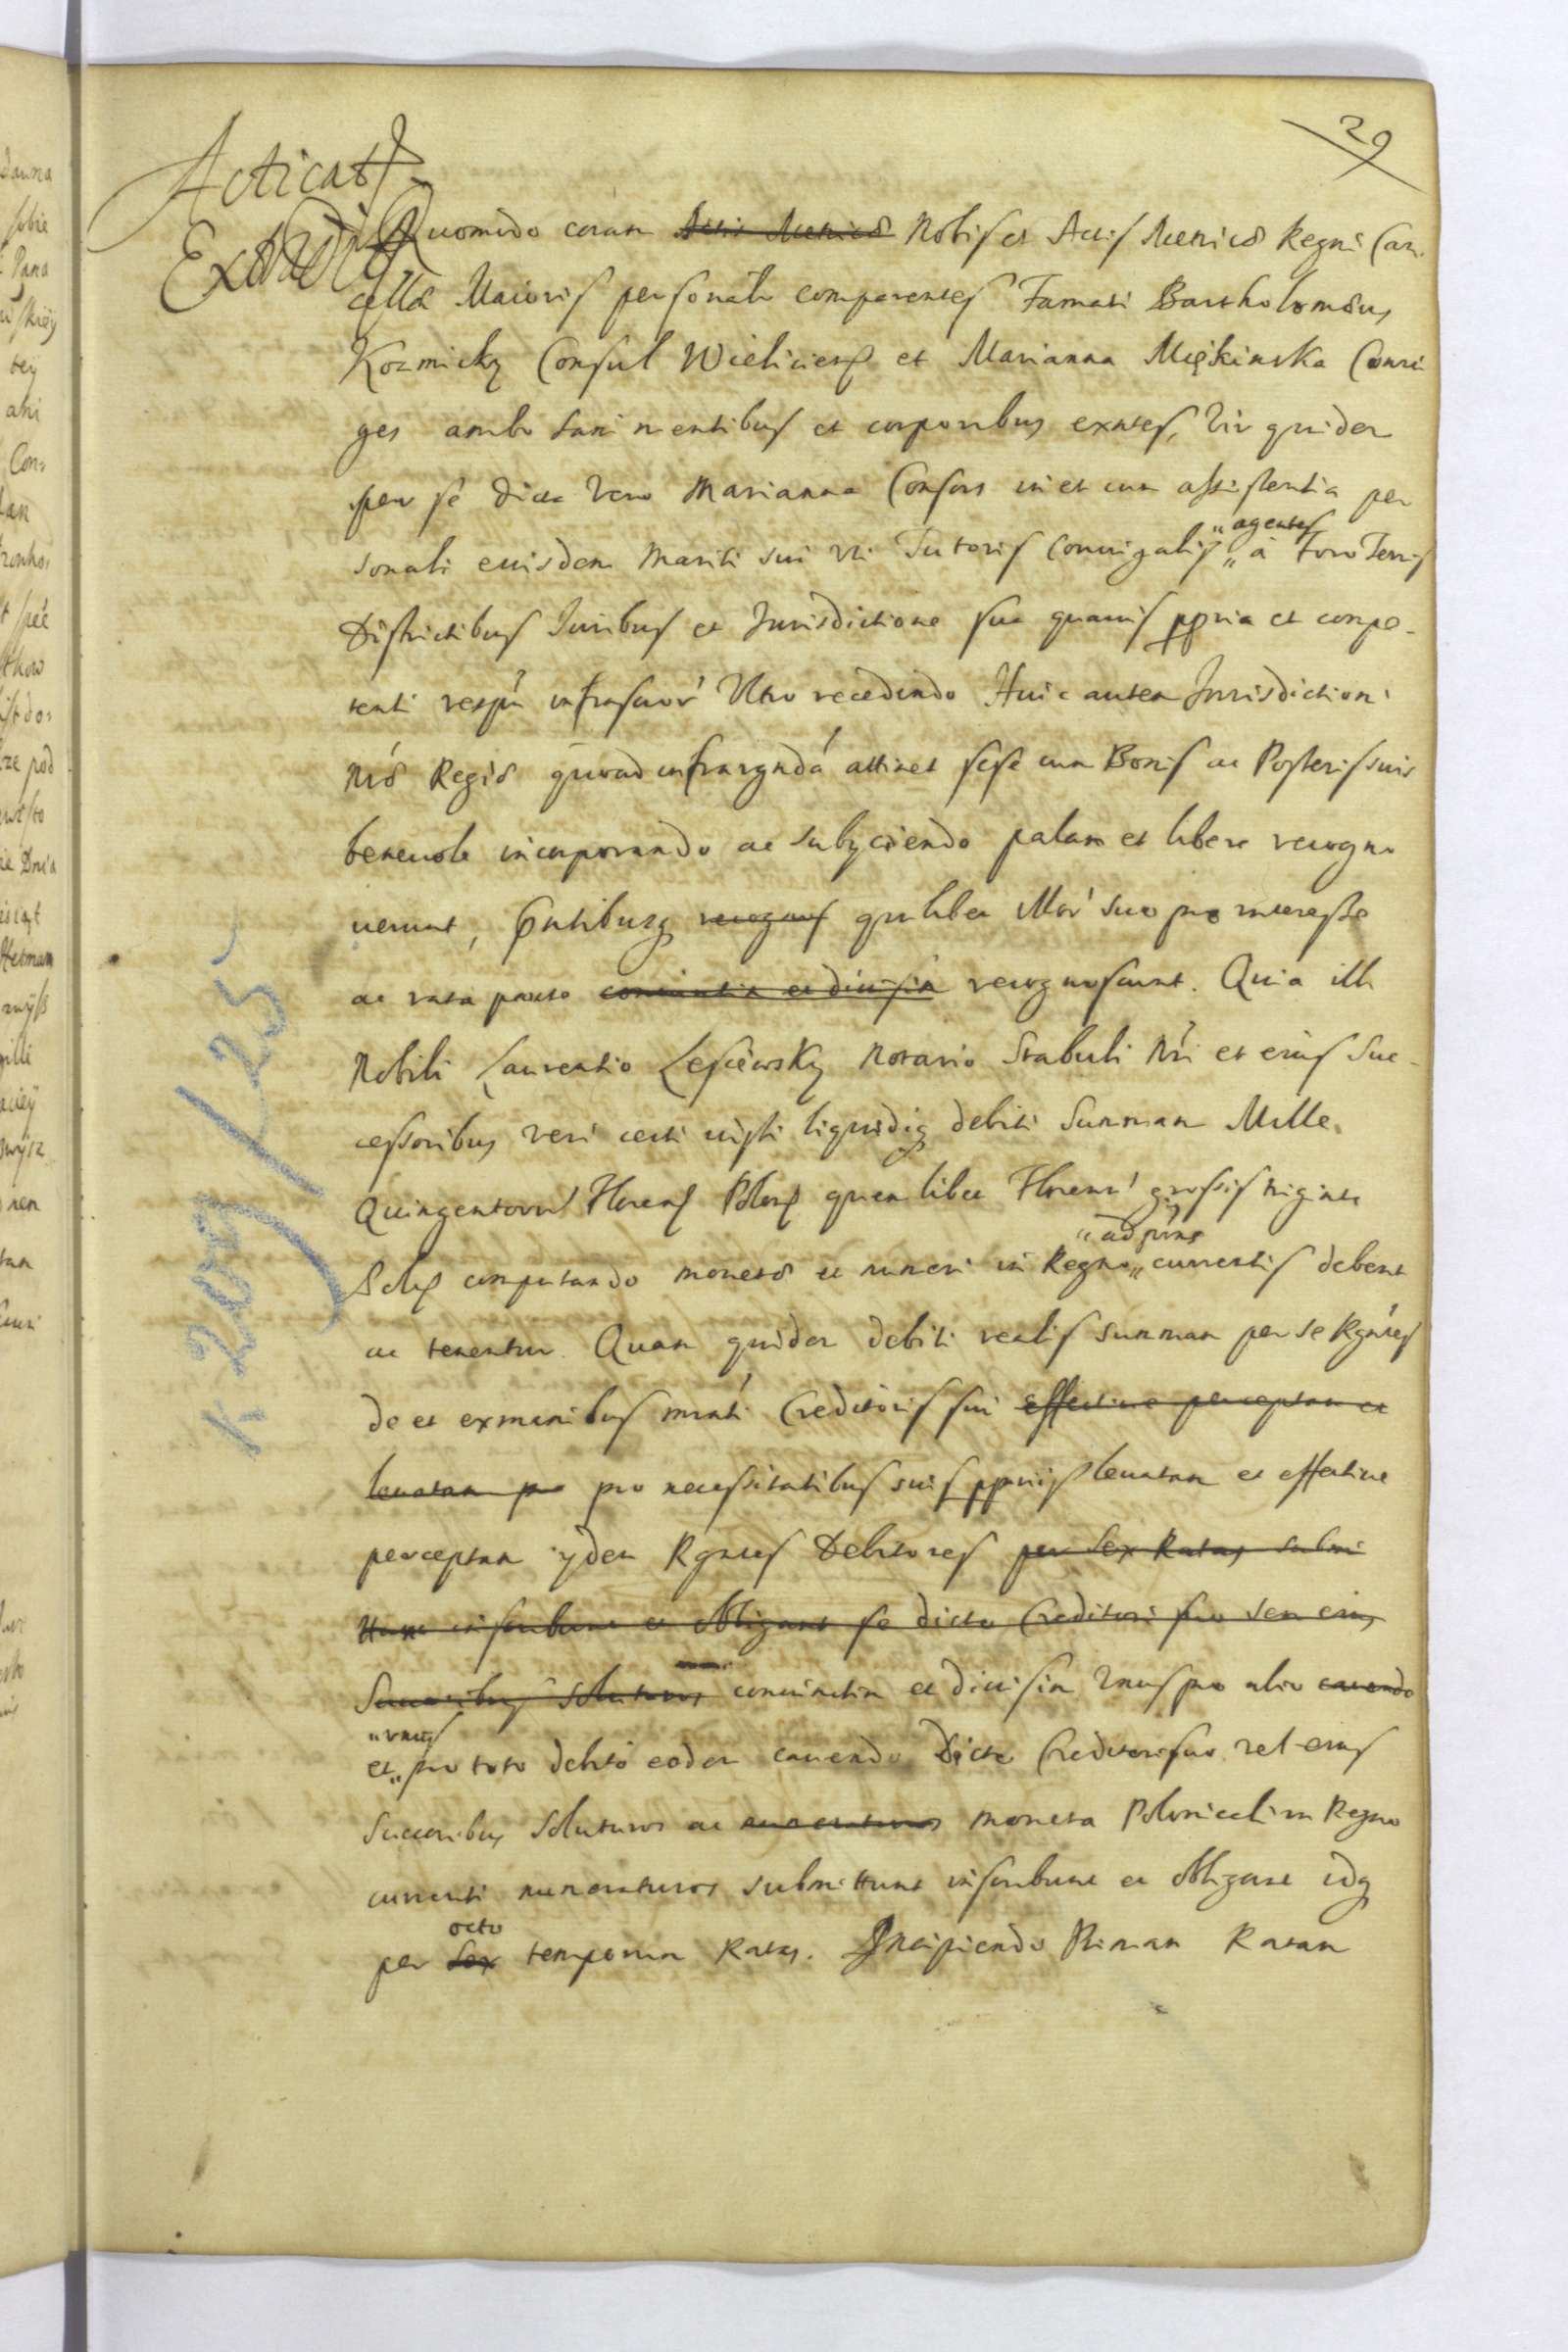 29
Acticat
Extradit
Quomodo coram Actis Metricæ Nobis et Actis Metricæ Regni Can-
cellæ Maioris personalr comparentes Famati Bartholomæus
Kozmicky Consul Wieliciens et Marianna Miękinska Coniu
ges ambo sani mentibus et corporibus exntes, Vir quidem
per se dicta vero Marianna Consors in et cum assistentia per
sonali eiusdem Mariti sui vti Tutoris Coniugalis
"agentes
" à Foro Terris
Districtibus Iuribus et Jurisdictione sua quamis ppria et compe-
tenti respu infrascror Vltro recedendo Huic autem Jurisdictioni
nrae Regiæ quoad infrargnda attinet sese cum Bonis ac Posteris suis
beneuole incorporando ac subyciendo palam et libere recogno
uerunt, Pntibusq recognos quilibet illor suo pro interesse
ac rata parte coniunctim et diuisim recognoscunt. Quia illi
Nobili Laurentio Lesciewsky Notario Stabuli Nri et eius Suc-
cessoribus veri certi iusti liquidiq debiti Summam Mille
Quingentorum Florens Polons quemlibet Florenu grossis triginta
"ad pūns
Polons computando monetæ et numeri in Regno " currentis debent
ac tenentur. Quam quidem debiti realis summam per se Rgntes
de et ex manibus mrati Creditoris sui effectiue perceptam et
leuatam pro pro necessitatibus suis ppriis leuatam et effectiue
perceptam ijdem Rgntes Debitores per Sex Ratas submi
ttunt inscribunt et obligant se dicto Creditori suo seu eius
Successoribus soluturos coniunctim et diuisim Vnus pro alio cauendo
"vnus
et " pro toto debito eodem cauendo Dicto Creditori suo vel eius
Succoribus soluturos ac numeraturos moneta Polonicali in Regno
currenti numeraturos submittunt inscribunt et obligant idq
octo
per Sex temporum Ratas. Incipiendo Primam Ratam
K 209/25